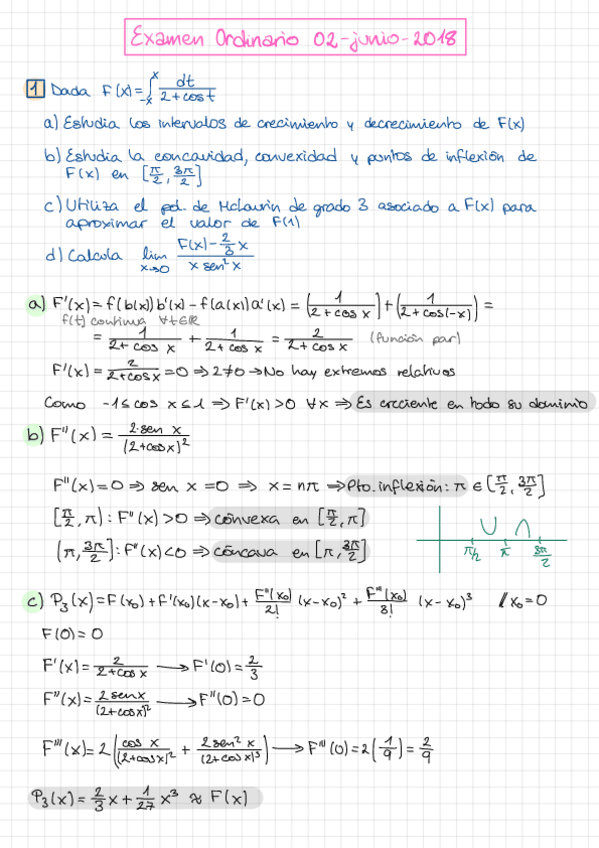 Examen Ordinario 02-junio-2018
1 Dada F(x)=∫_{-x}^{x} dt/(2+cos t)
a) Estudia los intervalos de crecimiento y decrecimiento de F(x)
b) Estudia la concavidad, convexidad y puntos de inflexión de
F(x) en [π/2, 3π/2]
c) Utiliza el pol. de McLaurin de grado 3 asociado a F(x) para
aproximar el valor de F(1)
d) Calcula lim_{x→0} (F(x)-2/3 x)/(x sen² x)
a) F'(x)=f(b(x))b'(x)-f(a(x))a'(x)=(1/(2+cos x))+(1/(2+cos(-x)))=
f(t) continua ∀t∈ℝ
= 1/(2+cos x) + 1/(2+cos x) = 2/(2+cos x) (función par)
F'(x)= 2/(2+cos x) =0 ⇒ 2≠0 → No hay extremos relativos
Como -1≤cos x≤1 ⇒ F'(x)>0 ∀x ⇒ Es creciente en todo su dominio
b) F''(x)= 2·sen x/(2+cos x)²
F''(x)=0 ⇒ sen x=0 ⇒ x=nπ ⇒ Pto. inflexión: π ∈ [π/2, 3π/2]
[π/2, π): F''(x)>0 ⇒ convexa en [π/2, π]
(π, 3π/2]: F''(x)<0 ⇒ cóncava en [π, 3π/2]
∪ ∩
π/2 π 3π/2
c) P₃(x)=F(x₀)+F'(x₀)(x-x₀)+ F''(x₀)/2! (x-x₀)² + F'''(x₀)/3! (x-x₀)³ / x₀=0
F(0)=0
F'(x)= 2/(2+cos x) → F'(0)= 2/3
F''(x)= 2senx/(2+cosx)² → F''(0)=0
F'''(x)=2(cos x/(2+cosx)² + 2sen² x/(2+cosx)³) → F'''(0)=2(1/9)= 2/9
P₃(x)= 2/3 x+ 1/27 x³ ≈ F(x)